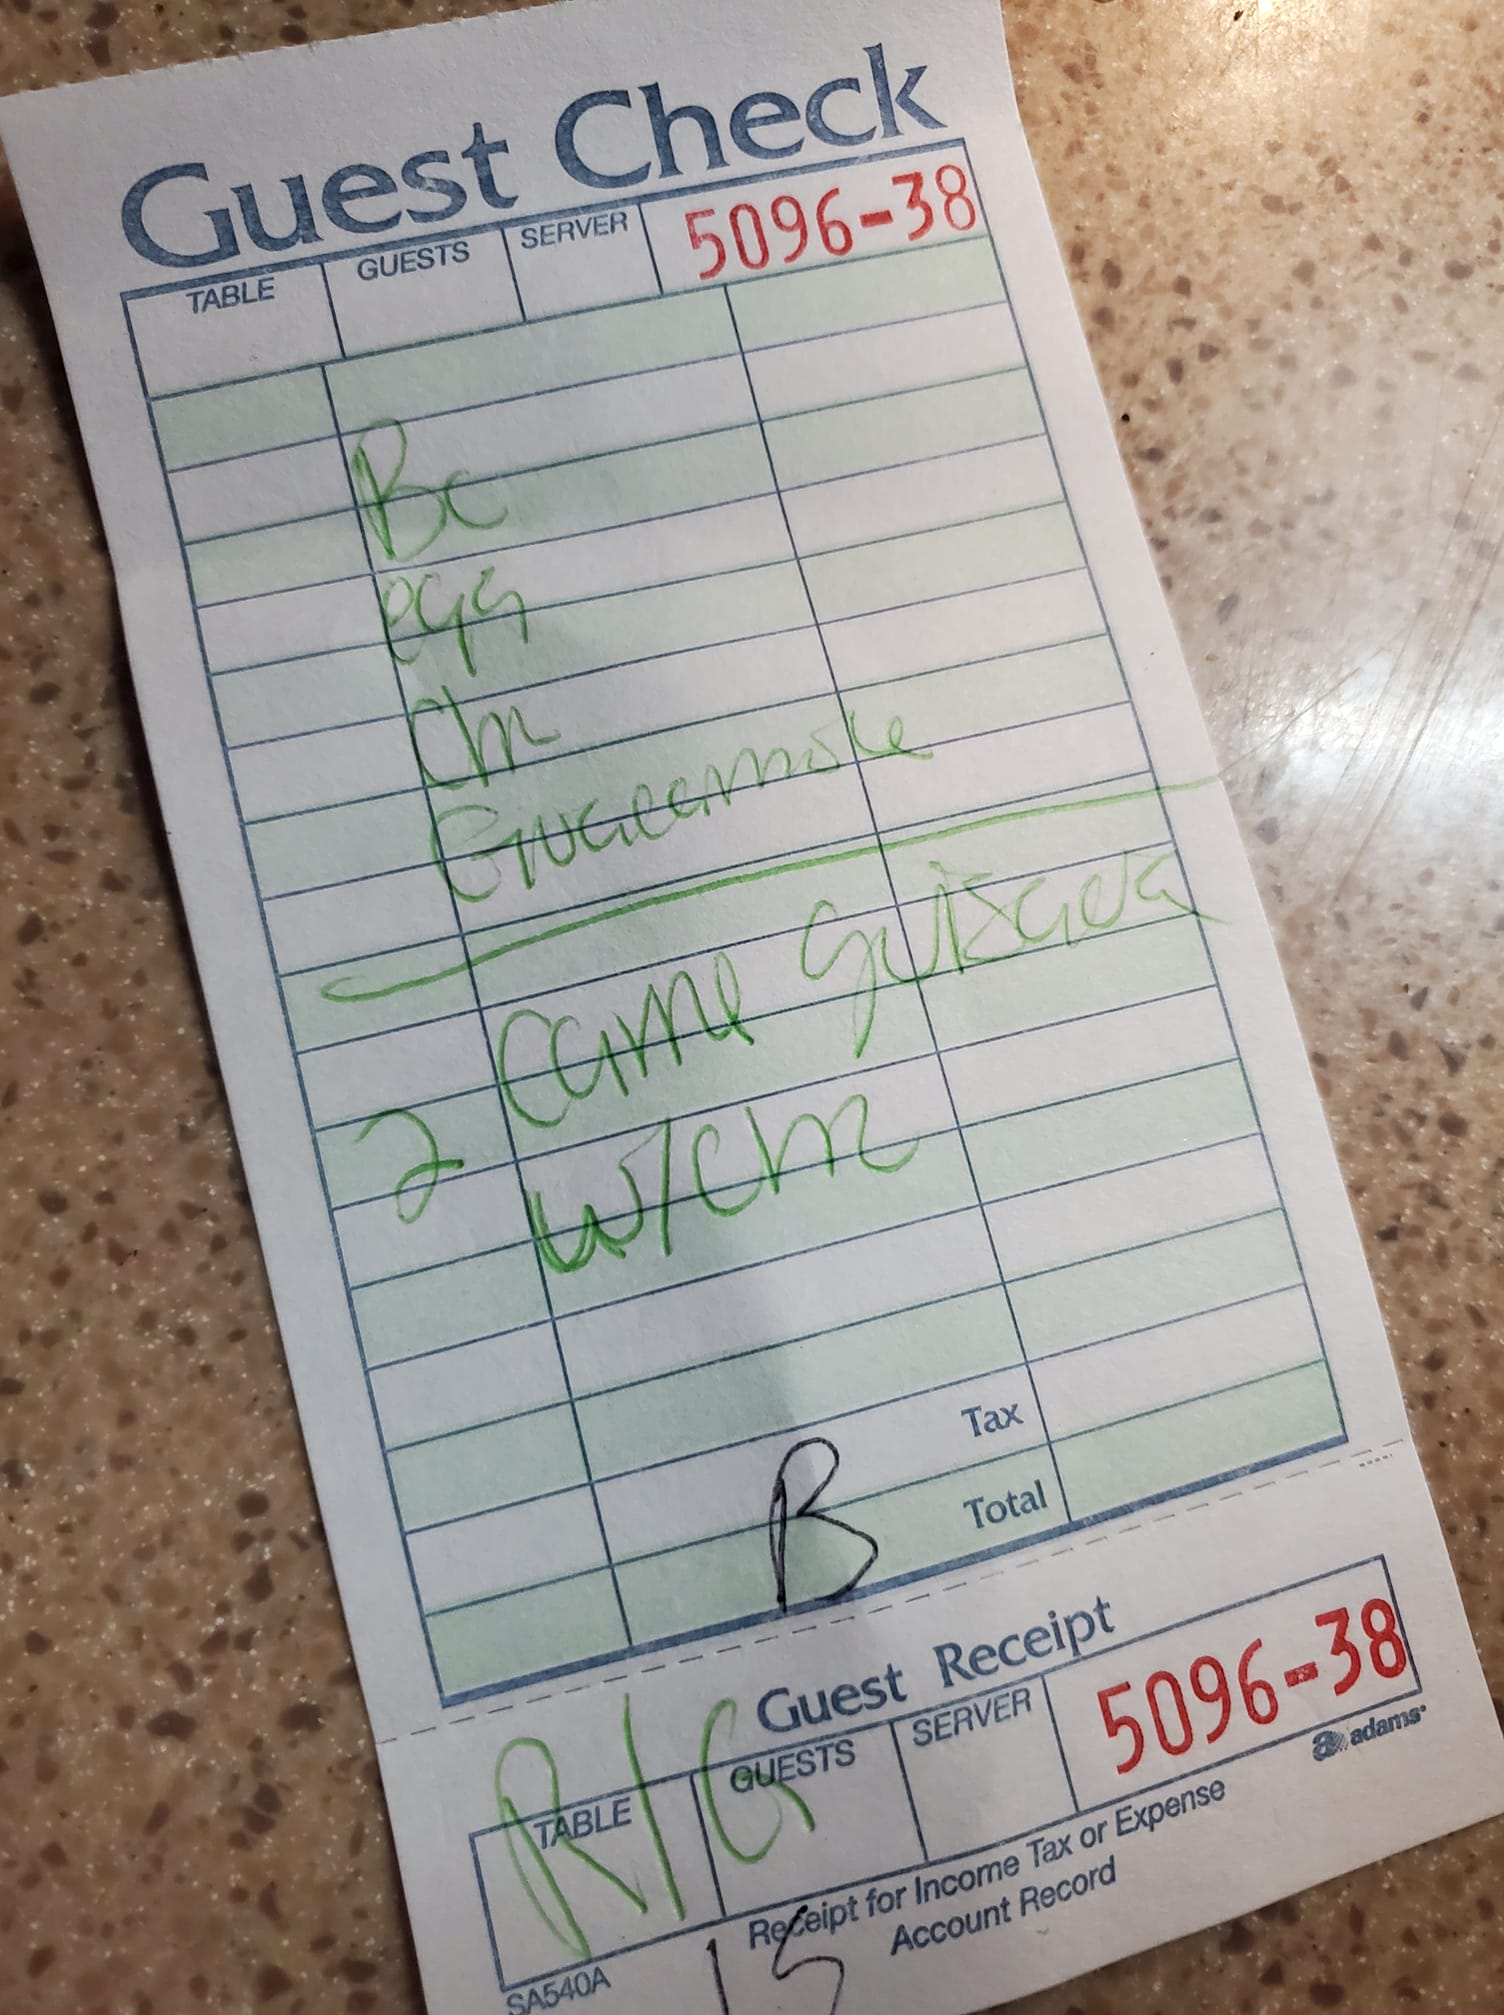 Guest Check
TABLE GUESTS SERVER 5096-38
Bc
egg
Chz
Guacamole
carne guisada
2 w/Chz
Tax
B
Total
Guest Receipt
R/G
TABLE GUESTS SERVER 5096-38
adams
Receipt for Income Tax or Expense
Account Record
SA540A
15